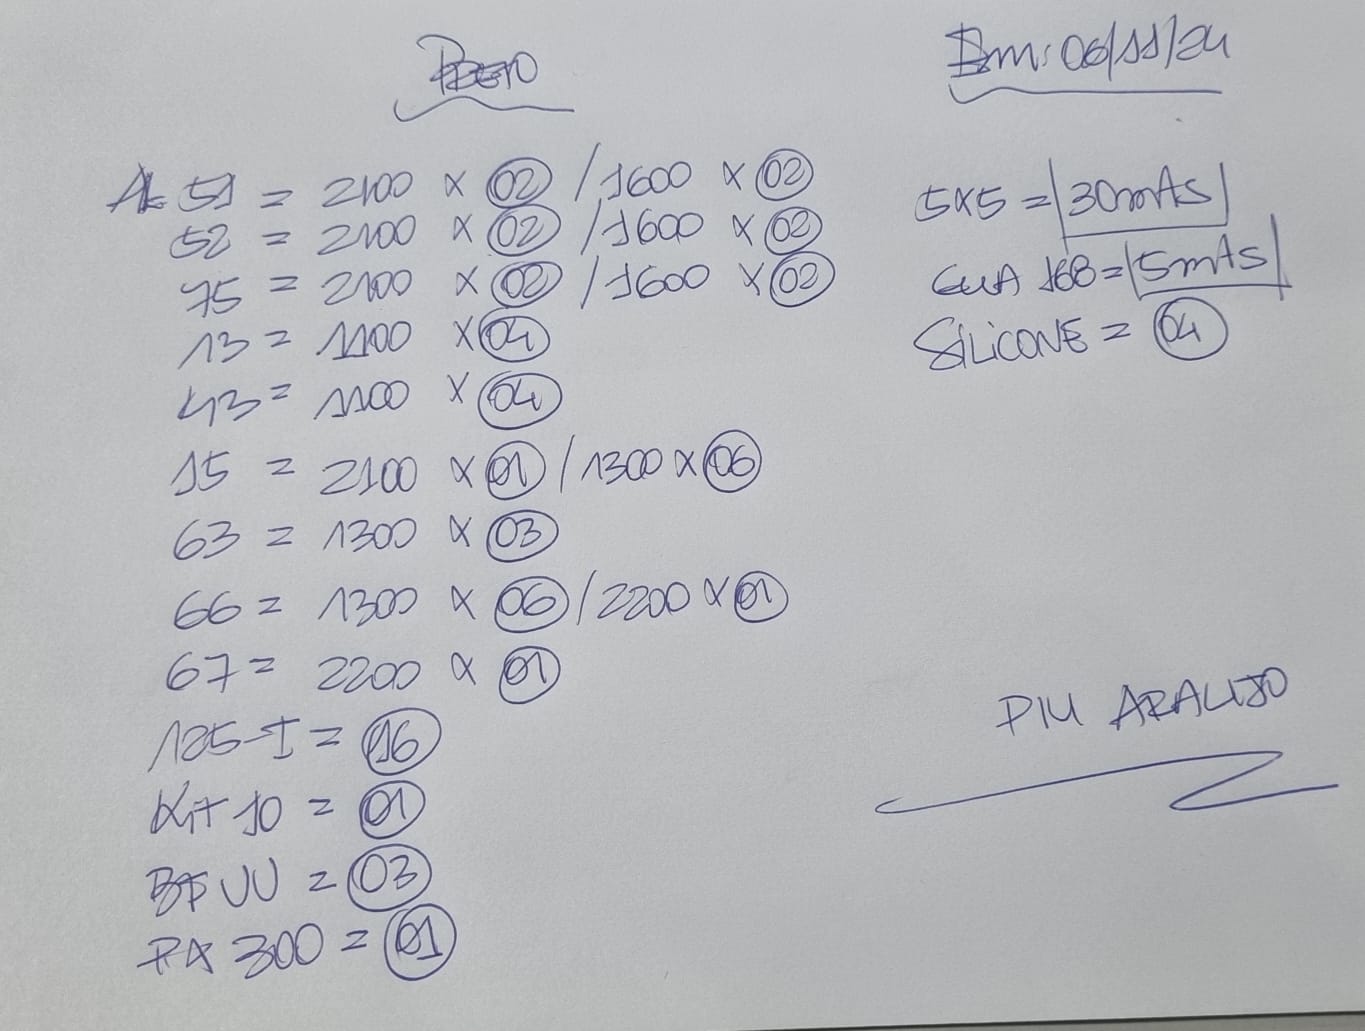 Em: 06/11/24
51 = 2100 x 02 / 1600 x 02
52 = 2100 x 02 / 1600 x 02
75 = 2100 x 02 / 1600 x 02
13 = 1100 x 04
43 = 1100 x 04
15 = 2100 x 01 / 1300 x 06
63 = 1300 x 03
66 = 1300 x 06 / 2200 x 01
67 = 2200 x 01
125-I = 16
Kit 10 = 01
UU = 03
300 = 01
5x5 = 30mts
168 = 15mts
SILICONE = 04
PIU ARAUJO